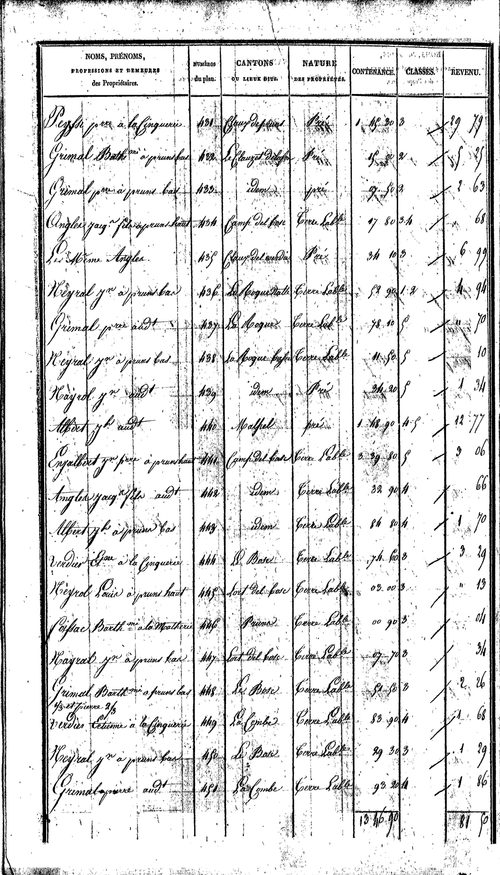 NOMS, PRÉNOMS, PROFESSIONS ET DEMEURES des Propriétaires. NUMÉROS du plan. CANTONS OU LIEUX DITS. NATURE DES PROPRIÉTÉS. CONTENANCE. CLASSES. REVENU.
pre à la Cinquerie 431 Pré 1 45 30 3 29 79
Grimal Barthmi à pruns bas 432 Pré 45 80 2 5 25
Grimal pre à pruns bas 433 idem pré 97 50 3 2 63
Angles jacqs fils à pruns haut 434 Camp del bose Terre Lable 17 80 34 " 68
Les Même Angles 435 Pré 34 10 3 6 99
Neyral jn à pruns bas 436 Terre Lable 58 90 1 2 4 94
Grimal pre audt 437 La Roque Terre Lable 78 10 5 " 70
Neyral jn à pruns bas 438 La Roque Terre Lable 11 50 5 10
Nayrol jn audt 439 idem Pré 34 20 5 1 34
Albert jh audt 440 Malpel pré 1 48 90 4 5 12 77
Enjalbert jn pre à pruns haut 441 Camp del bose Terre Lable 3 39 80 5 3 06
Angles jacqs fils audt 442 idem Terre Lable 32 90 4 66
Albert jh à pruns bas 443 idem Terre Lable 84 80 4 1 70
Verdier Etne à la Cinquerie 444 Le Bose Terre Lable 74 60 3 3 29
Neyral Louis à pruns haut 445 Lort del bose Terre Lable 03 00 3 " 13
Barthmi à la 446 Pruns Terre Lable 00 90 3 04
Nayral jn à pruns bas 447 Lort del bose Terre Lable 07 70 3 34
Grimal Barthmi à pruns bas 448 Le Bose Terre Lable 51 50 3 2 26
1/3 et Pierre 2/3
Verdier Etienne à la Cinquerie 449 La Combe Terre Lable 83 90 4 1 68
Neyral jn à pruns bas 450 Le Bose Terre Lable 29 30 3 1 29
Grimal pierre audt 451 La Combe Terre Lable 93 20 4 1 86
13 46 90 81 50